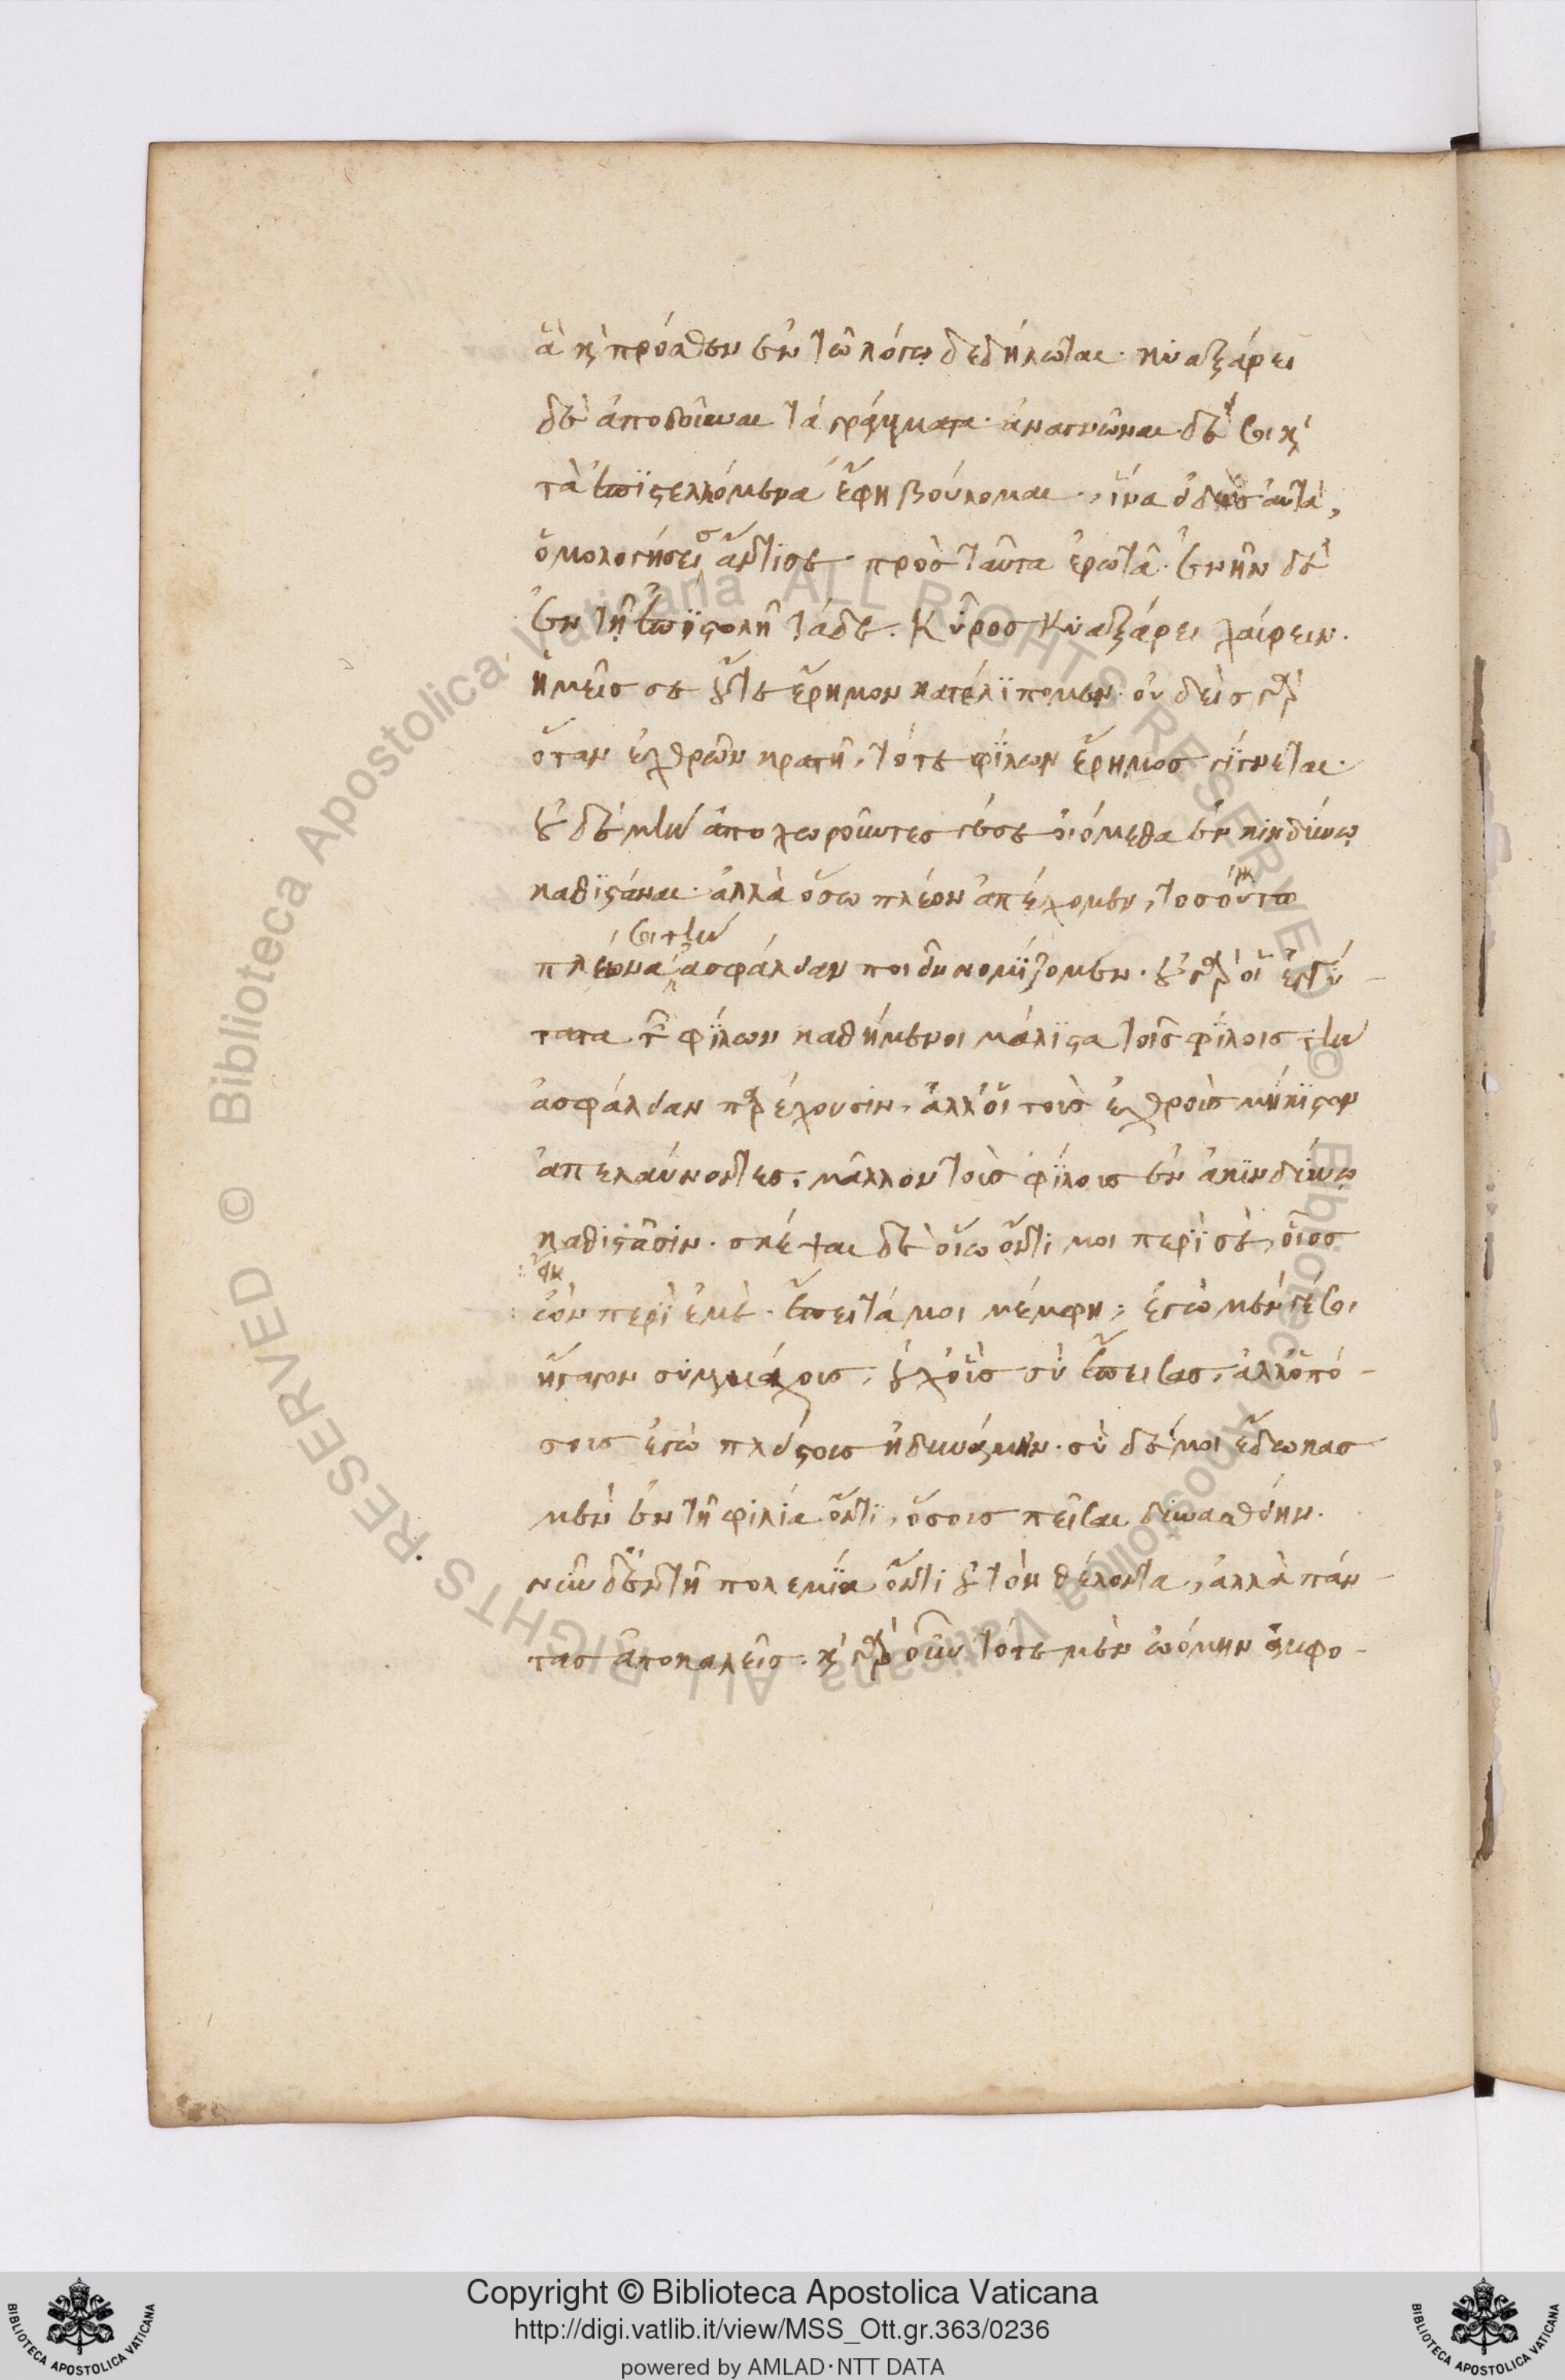 ἃ καὶ πρόσθεν ἐν τῷ λόγῳ δεδήλωται. κυαξάρει
δὲ ἀποδοῦναι τὰ γράμματα. ἀναγνῶναι δέ σοι καὶ
τὰ ἐπιστελλόμενα ἔφη βούλομαι, ἵνα εἰδὼς αὐτὰ,
ὁμολογήσεις ἄν τί σε πρὸς ταῦτα ἐρωτᾷ. ἐνῆν δὲ
ἐν τῇ ἐπιστολῇ τάδε. Κῦρος Κυαξάρει χαίρειν.
ἡμεῖς σε οὔτε ἔρημον κατελίπομεν. οὐδεὶς γὰρ
ὅταν ἐχθρῶν κρατῇ, τότε φίλων ἔρημος γίγνεται.
οὐδὲ μὴν ἀποχωροῦντές γέ σε οἰόμεθα ἐν κινδύνῳ
καθιστάναι. ἀλλὰ ὅσῳ πλέον ἀπέχομεν, τοσούτῳ
πλέονά σοι τὴν ἀσφάλειαν ποιεῖν νομίζομεν. οὐ γὰρ οἱ ἐγγύ-
τατα τῶν φίλων καθήμενοι μάλιστα τοῖς φίλοις τὴν
ἀσφάλειαν παρέχουσιν, ἀλλ' οἱ τοὺς ἐχθροὺς μήκιστον
ἀπελαύνοντες, μᾶλλον τοὺς φίλους ἐν ἀκινδύνῳ
καθιστᾶσιν. σκέψαι δὲ οἵῳ ὄντι μοι περὶ σὲ, οἷος
ὢν περὶ ἐμὲ. ἔπειτά μοι μέμφῃ, ἐγὼ μέν γέ σοι
ἤγαγον συμμάχους, οὐχ οὓς σὺ ἔπεισας, ἀλλ' ὁπό-
σους ἐγὼ πλείστους ἠδυνάμην. σὺ δέ μοι ἔδωκας
μὲν ἐν τῇ φιλίᾳ ὄντι, ὅσους πεῖσαι δυνασθείην.
νῦν δ' ἐν τῇ πολεμίᾳ ὄντι οὐ τὸν θέλοντα, ἀλλὰ πάν-
τας ἀποκαλεῖς. καὶ γὰρ οὖν τότε μὲν ᾠόμην ἀμφο-
Copyright © Biblioteca Apostolica Vaticana
http://digi.vatlib.it/view/MSS_Ott.gr.363/0236
powered by AMLAD·NTT DATA